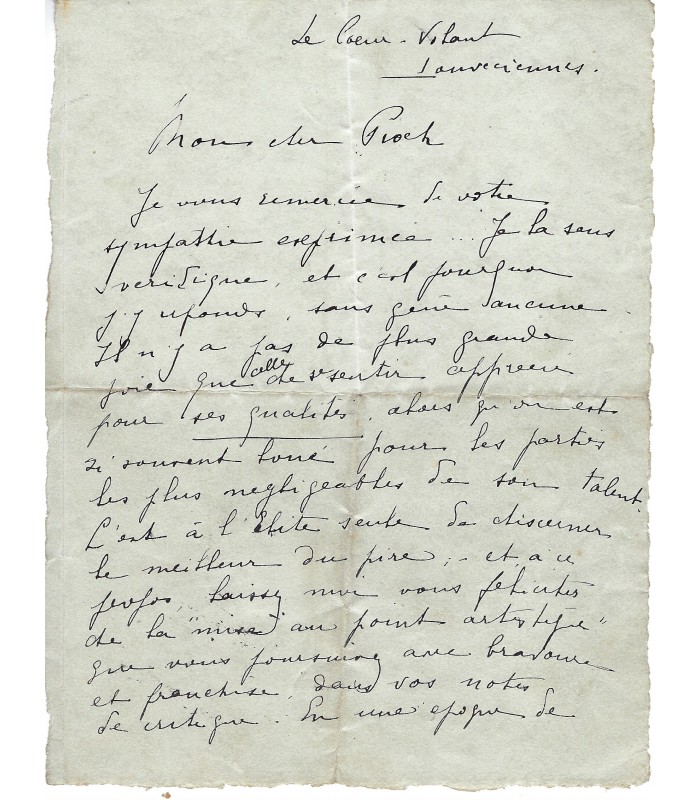 Le Coeur-Volant
Louveciennes.
Mon cher Pioch
Je vous remercie de votre
sympathie exprimée... Je la sens
véridique, et c'est pourquoi
j'y réponds, sans gêne aucune.
Il n'y a pas de plus grande
joie que celle de se sentir apprécié
pour ses qualités, alors qu'on est
si souvent loué pour les parties
les plus negligeables de son talent.
C'est à l'élite seule de discerner
le meilleur du pire; - et à ce
propos, laissez moi vous féliciter
de la "mise au point artistique"
que vous poursuivez avec bravoure
et franchise, dans vos notes
de critique. En une epoque de